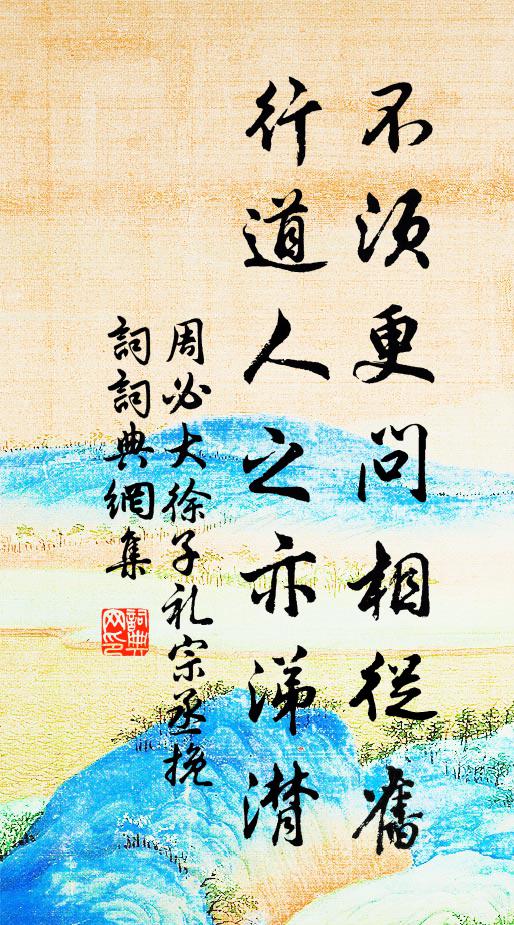 不須更問相從舊
行道人之亦涕潸
周必大徐子礼宗丞挽
詞詞典網集
詞典网印